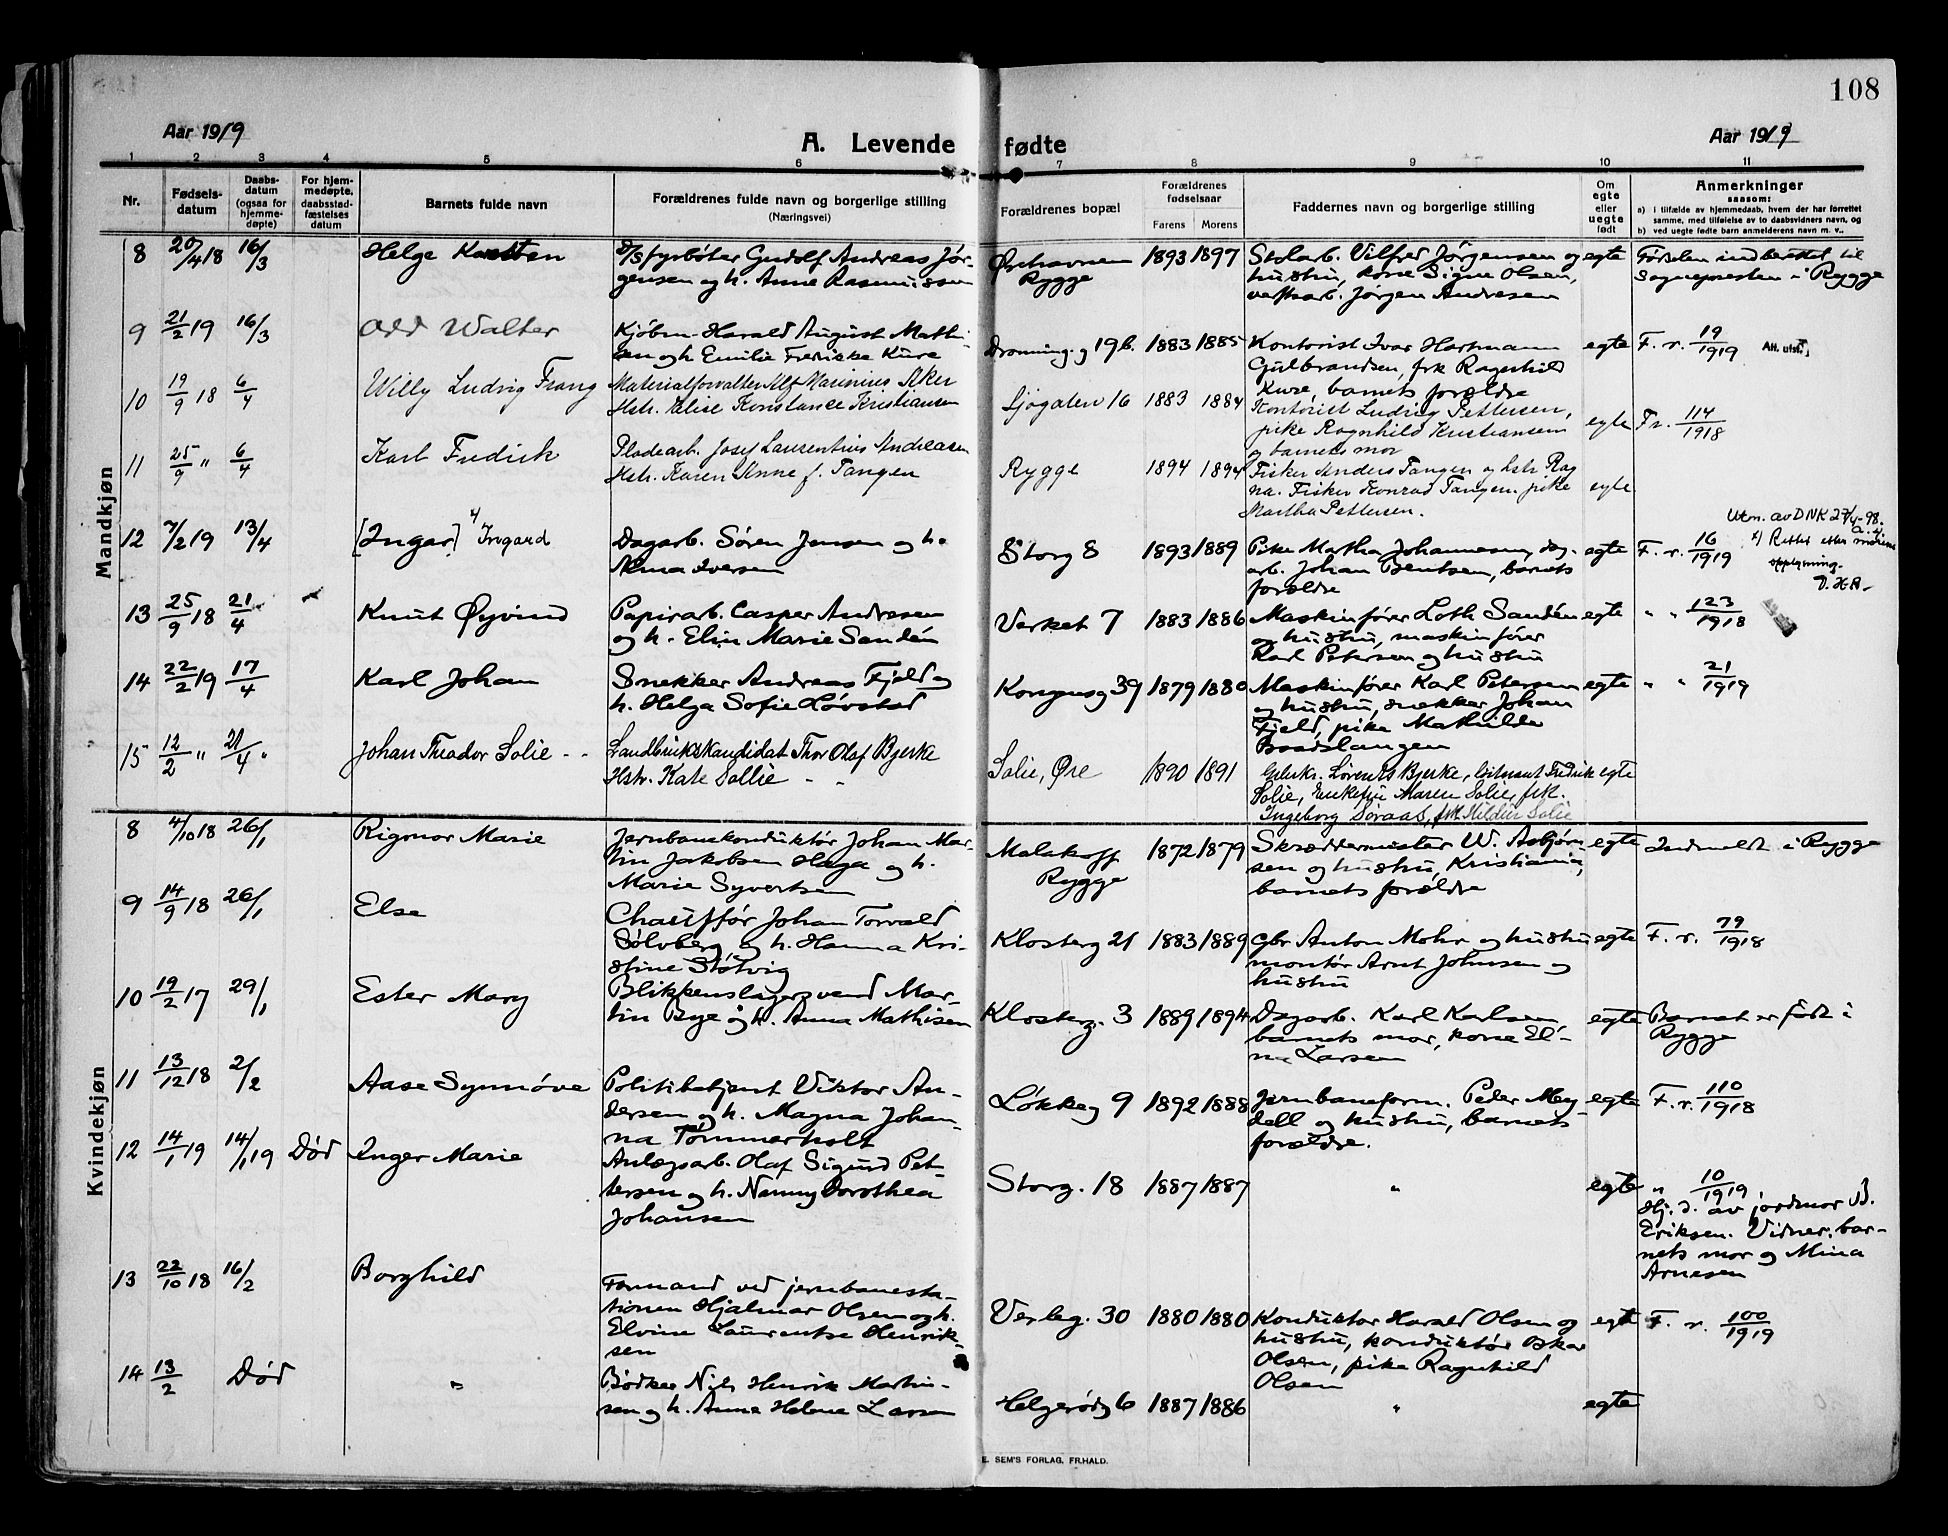 108
Aar 1919
A. Levende fødte
Aar 1919
1 2 3 4 5 6 7 8 9 10 11
Nr.
Fødsels-
datum
Daabs-
datum
(ogsaa for
hjemme-
døpte)
For hjem-
medøpte,
daabsstad-
fæstelses
datum
Barnets fulde navn
Forældrenes fulde navn og borgerlige stilling
(Næringsvei)
Forældrenes bopæl
Forældrenes
fødselsaar
Farens Morens
Faddernes navn og borgerlige stilling
Om
egte
eller
uegte
født
Anmerkninger
saasom:
a) i tilfælde av hjemmedaab, hvem der har forrettet
samme, med tilføielse av to daabsvidners navn, og
b) ved uegte fødte barn anmelderens navn m. v..
Mandkjøn
8 20/4 18 16/3 Helge Karsten
D/S fyrbøter Gudolf Andreas Jør-
gensen og h. Anne Rasmussen
Ørehavnen
Rygge
1893 1897
Stolarb. Vilfred Jørgensen og
hustru, kone Signe Olsen,
verftsarb. Jørgen Andresen
egte
Fødselen indberettet til
sognepresten i Rygge
9 21/2 19 16/3 Odd Walter
Kjøbm. Harald August Mathi-
sen og h. Emilie Fredrikke Kure
Dronning.g 19 b. 1883 1885
Kontorist Ivar Hartmann
Gulbrandsen, frk Ragnhild
Kure, barnets forældre
egte F. r. 19/1919 Att. utst.
10 19/9 18 6/4 Willy Ludvig Frang
Materialforvalter Alf Marinius Aker
Hstr. Elise Konstance Kristiansen
Sjøgaten 16 1883 1884
Kontorist Ludvig Pettersen,
pike Ragnhild Kristiansen
og barnets mor
egte Fr. 114/1918
11 25/9 " 6/4 Karl Fredrik
Pladearb. Josef Laurentius Andreasen
Hstr. Karen Anne f. Tangen
Rygge 1894 1894
Fisker Anders Tangen og hstr Rag
na. Fisker Konrad Tangen, pike
Martha Pettersen.
egte
12 7/2 19 13/4 [Ingar] x) Ingard
Dagarb. Søren Jensen og h.
Alma Iversen
Storg 8 1893 1889
Pike Martha Johannesen, dag-
arb. Johan Bentsen, barnets
forældre
egte F. r. 16/1919
Utm. av DNK 27/4-98.
x) Rettet efter morens
opplysning.
13 25/9 18 21/4 Knut Øyvind
Papirarb. Casper Andresen
og h. Elin Marie Sandén
Verket 7 1883 1886
Maskinfører Loth Sandén
og hustru, maskinfører
Karl Petersen og hustru
egte " " 123/1918
14 22/2 19 17/4 Karl Johan
Snekker Andreas Fjeld og
h. Helga Sofie Løvstad
Kongensg 39 1879 1880
Maskinfører Karl Petersen
og hustru, snekker Johan
Fjeld, pike Mathilde
Braadslangen
egte " " 21/1919
15 12/2 " 21/4 " Johan Theodor Solie - -
Landbrukskandidat Thor Olaf Bjerke
Hstr. Kate Sollie - -
Solie, Øre 1890 1891
Gdbrkr. Lorents Bjerke, løitnant Fredrik
Solie, Enkefru Maren Solie, frk.
Ingeborg Soraas, frk Hildur Solie
egte
Kvindekjøn
8 4/10 18 26/1 Rigmor Marie
Jernbanekonduktør Johan Mar-
tin Jakobsen Haga og h.
Marie Syvertsen
Malakoff
Rygge
1872 1879
Skræddermester W. Asbjørn
sen og hustru, Kristiania,
barnets forældre
egte Indmeldt i Rygge
9 14/9 18 26/1 Else
Chauffør Johan Torvald
Sølvberg og h. Hanna Kri-
stine Støtvig
Klosterg 21 1883 1889
Gbr Anton Mohr og hustru
montør Arnt Johnsen og
hustru
egte F. r. 79/1918
10 19/2 17 29/1 Ester Mary
Blikkenslagersvend Mar-
tin Bye og h. Anna Mathisen
Klosterg. 3 1889 1894
Dagarb. Karl Karlsen
barnets mor, kone El-
na Larsen
egte Barnet er født i
Rygge
11 13/12 18 2/2 Aase Synnøve
Politibetjent Viktor An-
dersen og h. Magna Johan-
na Tømmerholt
Løkkeg 9 1892 1888
Jernbaneform. Peder Mey-
dell og hustru, barnets
forældre.
egte F. r. 110/1918
12 14/1 19 14/1 19 Død Inger Marie
Anlægsarb. Olaf Sigurd Pet-
tersen og h. Nanny Dorothea
Johansen
Storg. 18 1887 1887
"
egte " 10/1919
Hj. d. av jordmor B.
Eriksen. Vidner: bar-
nets mor og Mina
Arnesen
13 22/10 18 16/2 Borghild
Formand ved jernbanesta-
tionen Hjalmar Olsen og h.
Elvine Laurentse Henrik-
sen
Verleg. 30 1880 1880
Konduktør Harald Olsen og
hustru, konduktør Oskar
Olsen, pike Ragnhild
Olsen
egte F. r. 100/1919
14 13/2 Død "
Bødker Nils Henrik Martin-
sen og h. Anna Helene Larsen
Helgerødg 6 1887 1886
"
egte
E. SEM'S FORLAG, FR.HALD.